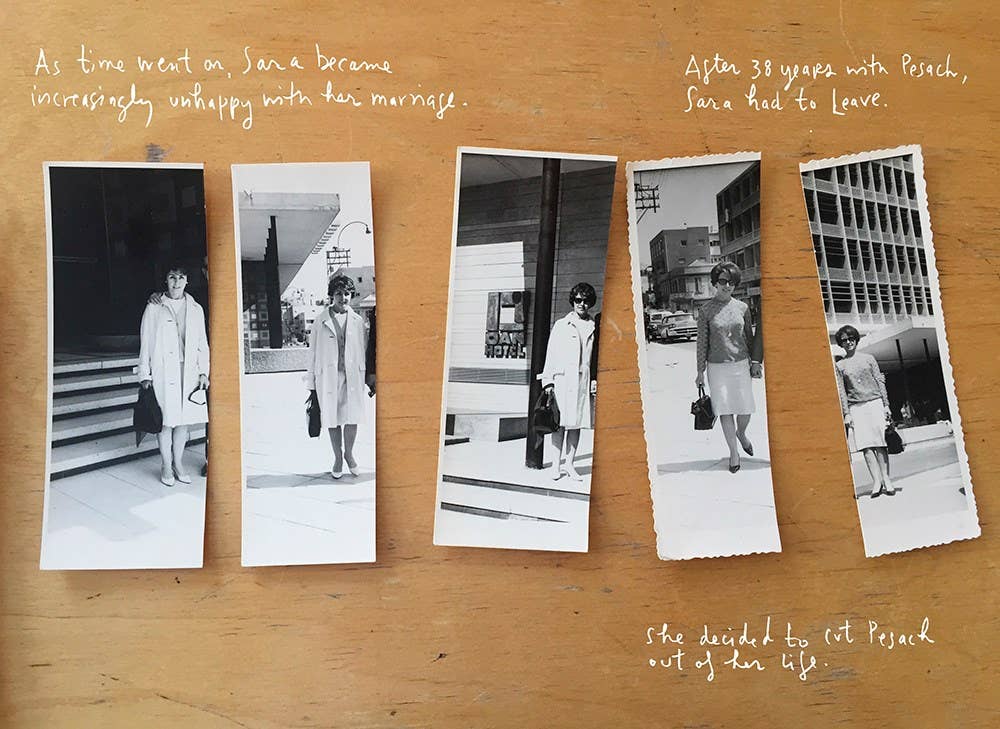 As time went on, Sara became
increasingly unhappy with her marriage.
After 38 years with Pesach,
Sara had to Leave.
DAN
HOTEL
She decided to cut Pesach
out of her life.